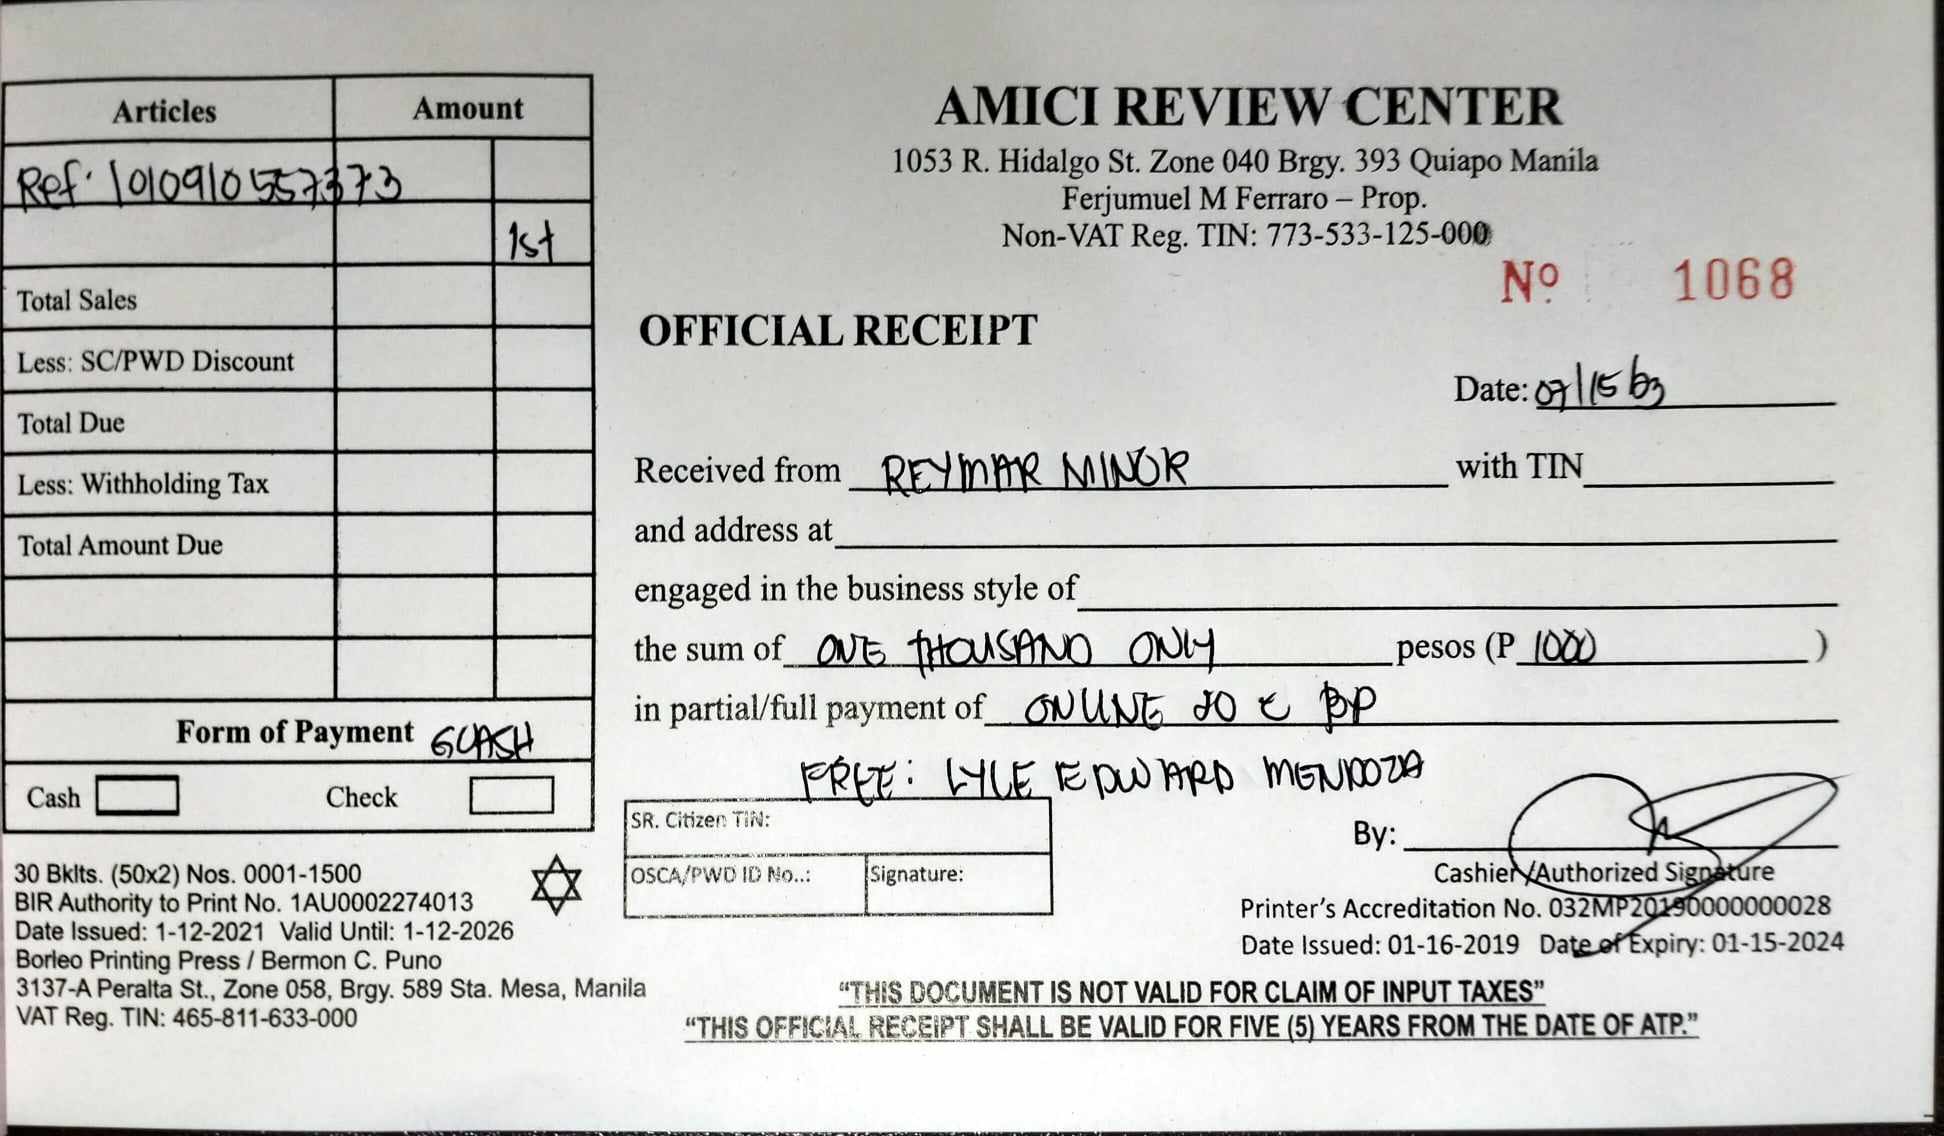 Articles Amount
Ref: 1010910557373
1st
Total Sales
Less: SC/PWD Discount
Total Due
Less: Withholding Tax
Total Amount Due
Form of Payment GCASH
Cash Check
30 Bklts. (50x2) Nos. 0001-1500
BIR Authority to Print No. 1AU0002274013
Date Issued: 1-12-2021 Valid Until: 1-12-2026
Borleo Printing Press / Bermon C. Puno
3137-A Peralta St., Zone 058, Brgy. 589 Sta. Mesa, Manila
VAT Reg. TIN: 465-811-633-000
AMICI REVIEW CENTER
1053 R. Hidalgo St. Zone 040 Brgy. 393 Quiapo Manila
Ferjumuel M Ferraro – Prop.
Non-VAT Reg. TIN: 773-533-125-000
Nº 1068
OFFICIAL RECEIPT
Date: 07/15
Received from REYMAR MINOR with TIN
and address at
engaged in the business style of
the sum of ONE THOUSAND ONLY pesos (P 1000 )
in partial/full payment of ONLINE BP
FREE: LYLE EDWARD MENDOZA
SR. Citizen TIN:
OSCA/PWD ID No..: Signature:
By:
Cashier/Authorized Signature
Printer's Accreditation No. 032MP20190000000028
Date Issued: 01-16-2019 Date of Expiry: 01-15-2024
“THIS DOCUMENT IS NOT VALID FOR CLAIM OF INPUT TAXES”
“THIS OFFICIAL RECEIPT SHALL BE VALID FOR FIVE (5) YEARS FROM THE DATE OF ATP.”